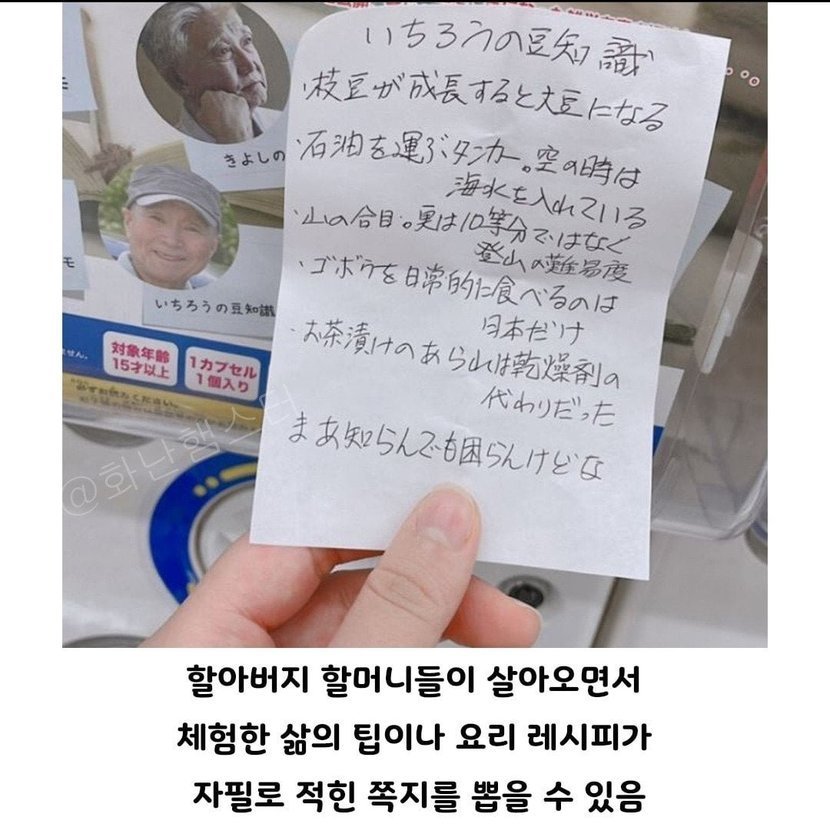 モ
きよしの
モ
いちろうの豆知識
ません。
対象年齢
15才以上
1カプセル
1個入り
必ずお読みください。
いちろうの豆知識
・枝豆が成長すると大豆になる
・石油を運ぶタンカー。空の時は
海水を入れている
・山の合目。実は10等分ではなく
登山の難易度
・ゴボウを日常的に食べるのは
日本だけ
・お茶漬けのあられは乾燥剤の
代わりだった
まあ知らんでも困らんけどな
@화난햄스터
할아버지 할머니들이 살아오면서
체험한 삶의 팁이나 요리 레시피가
자필로 적힌 쪽지를 뽑을 수 있음